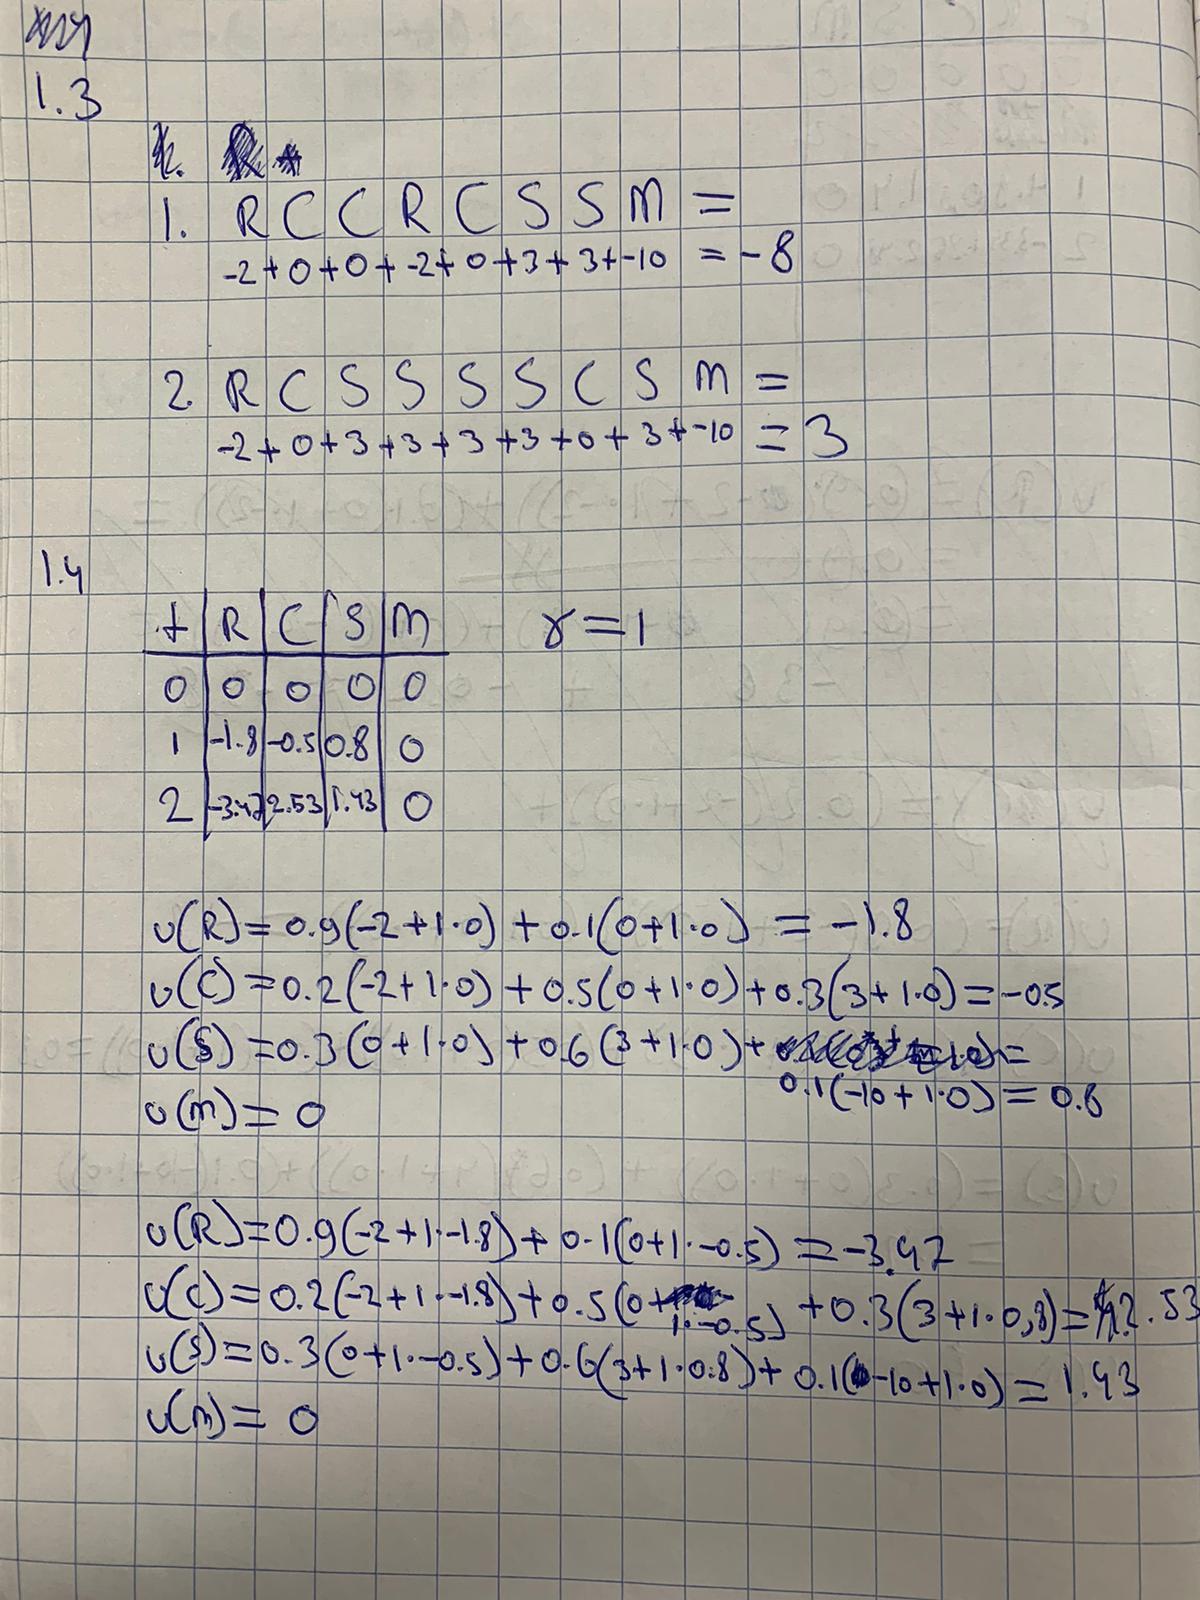 1.3
1. R C C R C S S M =
-2 + 0 + 0 + -2 + 0 + 3 + 3 + -10 = -8
2. R C S S S S C S M =
-2 + 0 + 3 + 3 + 3 + 3 + 0 + 3 + -10 = 3
1.4
t | R | C | S | M γ = 1
0 | 0 | 0 | 0 | 0
1 | -1.8 | -0.5 | 0.8 | 0
2 | -3.47 | 2.53 | 1.43 | 0
v(R) = 0.9(-2+1·0) + 0.1(0+1·0) = -1.8
v(C) = 0.2(-2+1·0) + 0.5(0+1·0) + 0.3(3+1·0) = -0.5
v(S) = 0.3(0+1·0) + 0.6(3+1·0) + =
0.1(-10+1·0) = 0.8
v(M) = 0
v(R) = 0.9(-2+1·-1.8) + 0.1(0+1·-0.5) = -3.47
v(C) = 0.2(-2+1·-1.8) + 0.5(0+1·-0.5) + 0.3(3+1·0,8) = 2.53
v(S) = 0.3(0+1·-0.5) + 0.6(3+1·0.8) + 0.1(-10+1·0) = 1.43
v(M) = 0